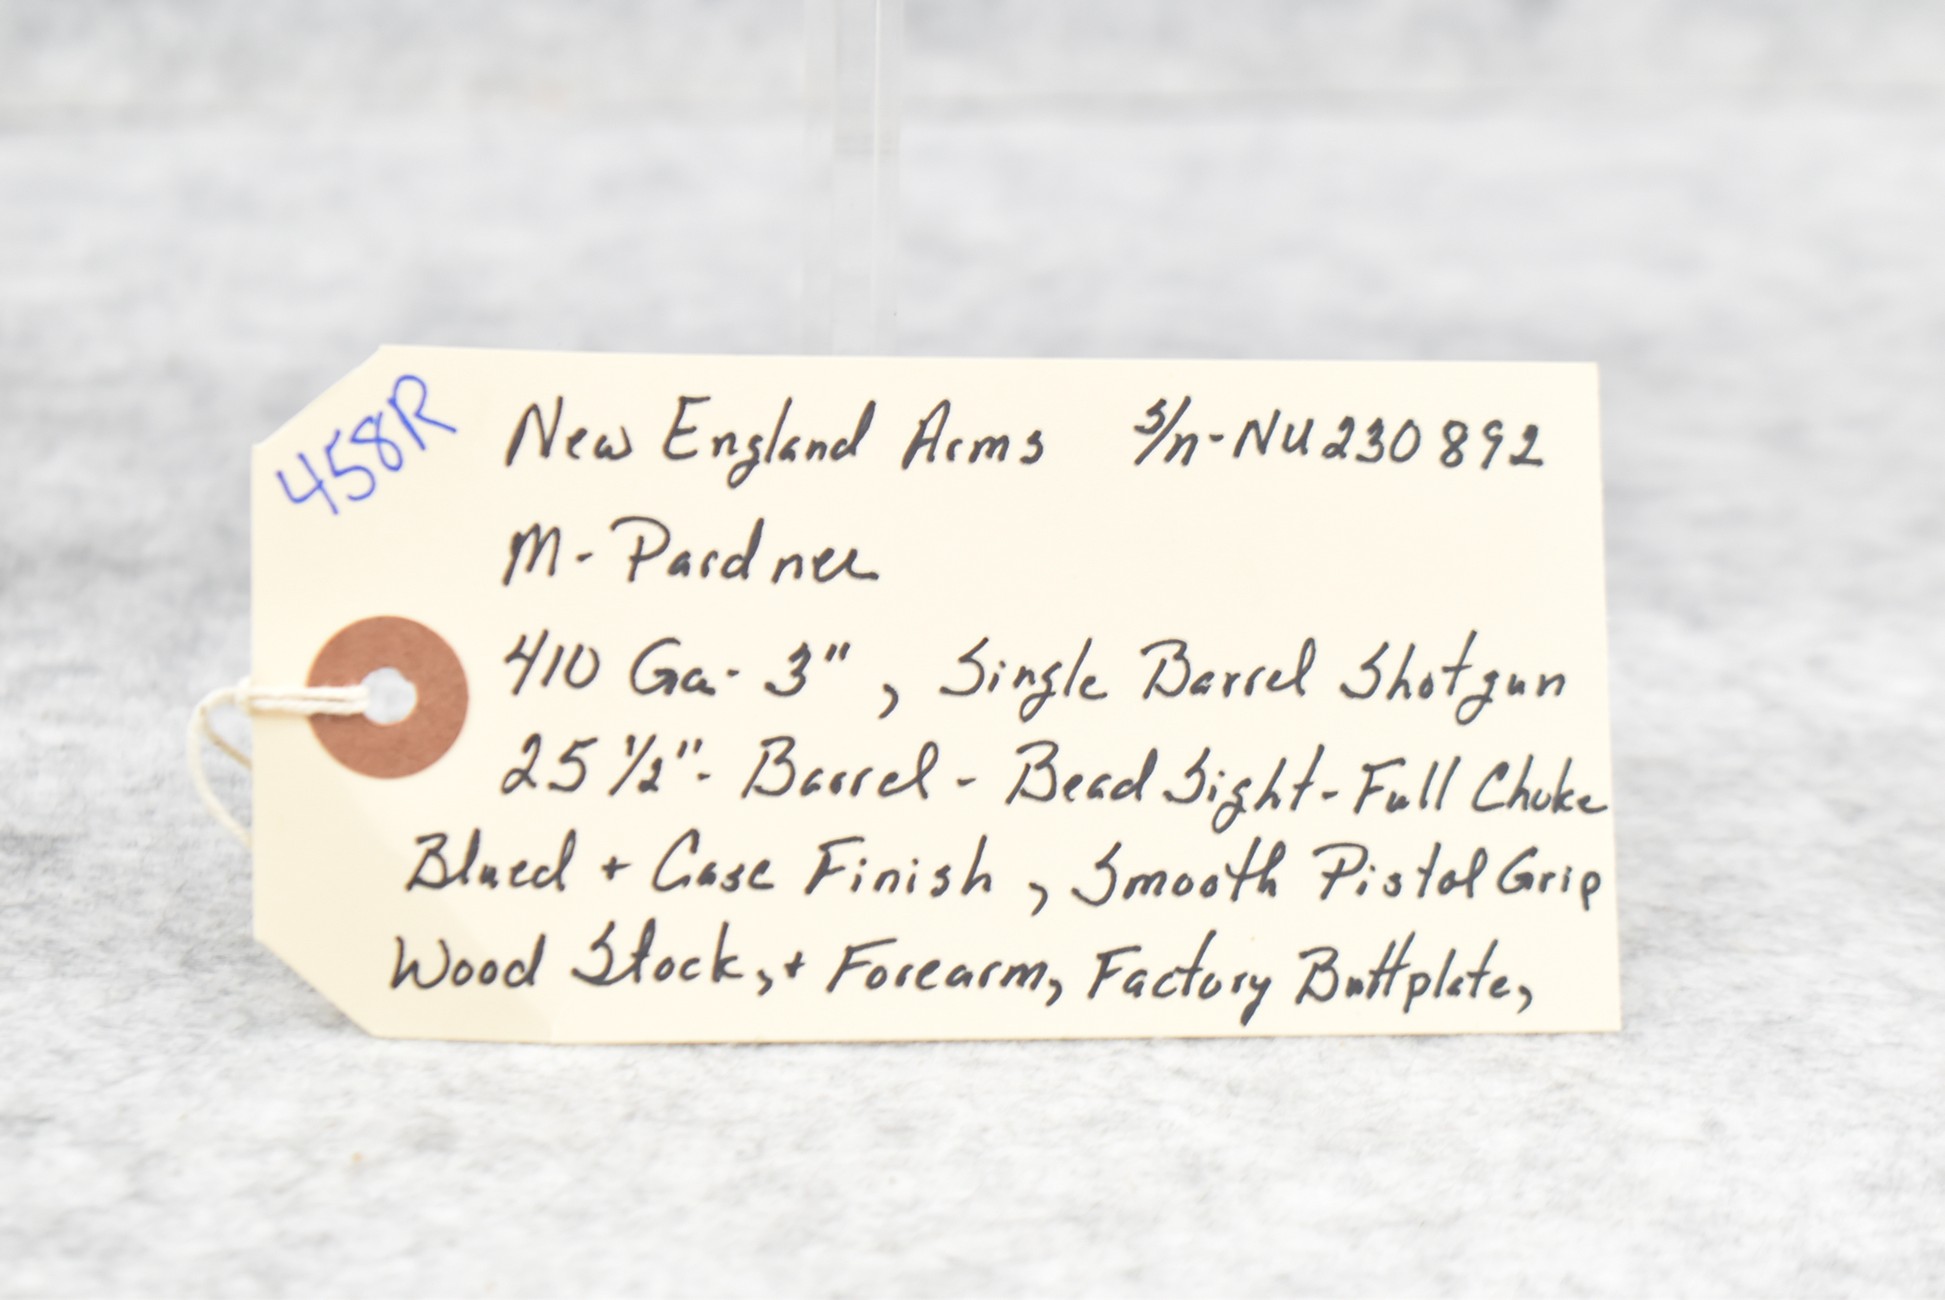 458R
New England Arms s/n-NU230892
M-Pardner
410 Ga- 3", Single Barrel Shotgun
25 1/2"- Barrel - Bead Sight-Full Choke
Blued + Case Finish, Smooth Pistol Grip
Wood Stock, + Forearm, Factory Buttplate,